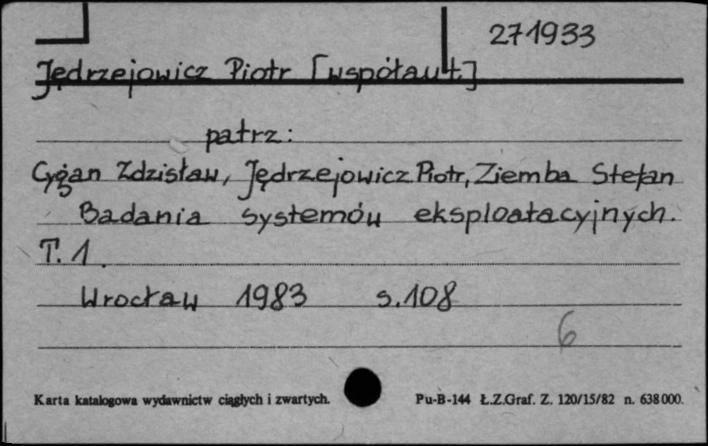 271933
Jędrzejowicz Piotr [współaut.]
patrz:
Cygan Zdzisław, Jędrzejowicz Piotr, Ziemba Stefan
Badania systemów eksploatacyjnych.
T. 1.
Wrocław 1983 s. 108
6
Karta katalogowa wydawnictw ciągłych i zwartych. Pu-B-144 Ł.Z.Graf. Z. 120/15/82 n. 638 000.